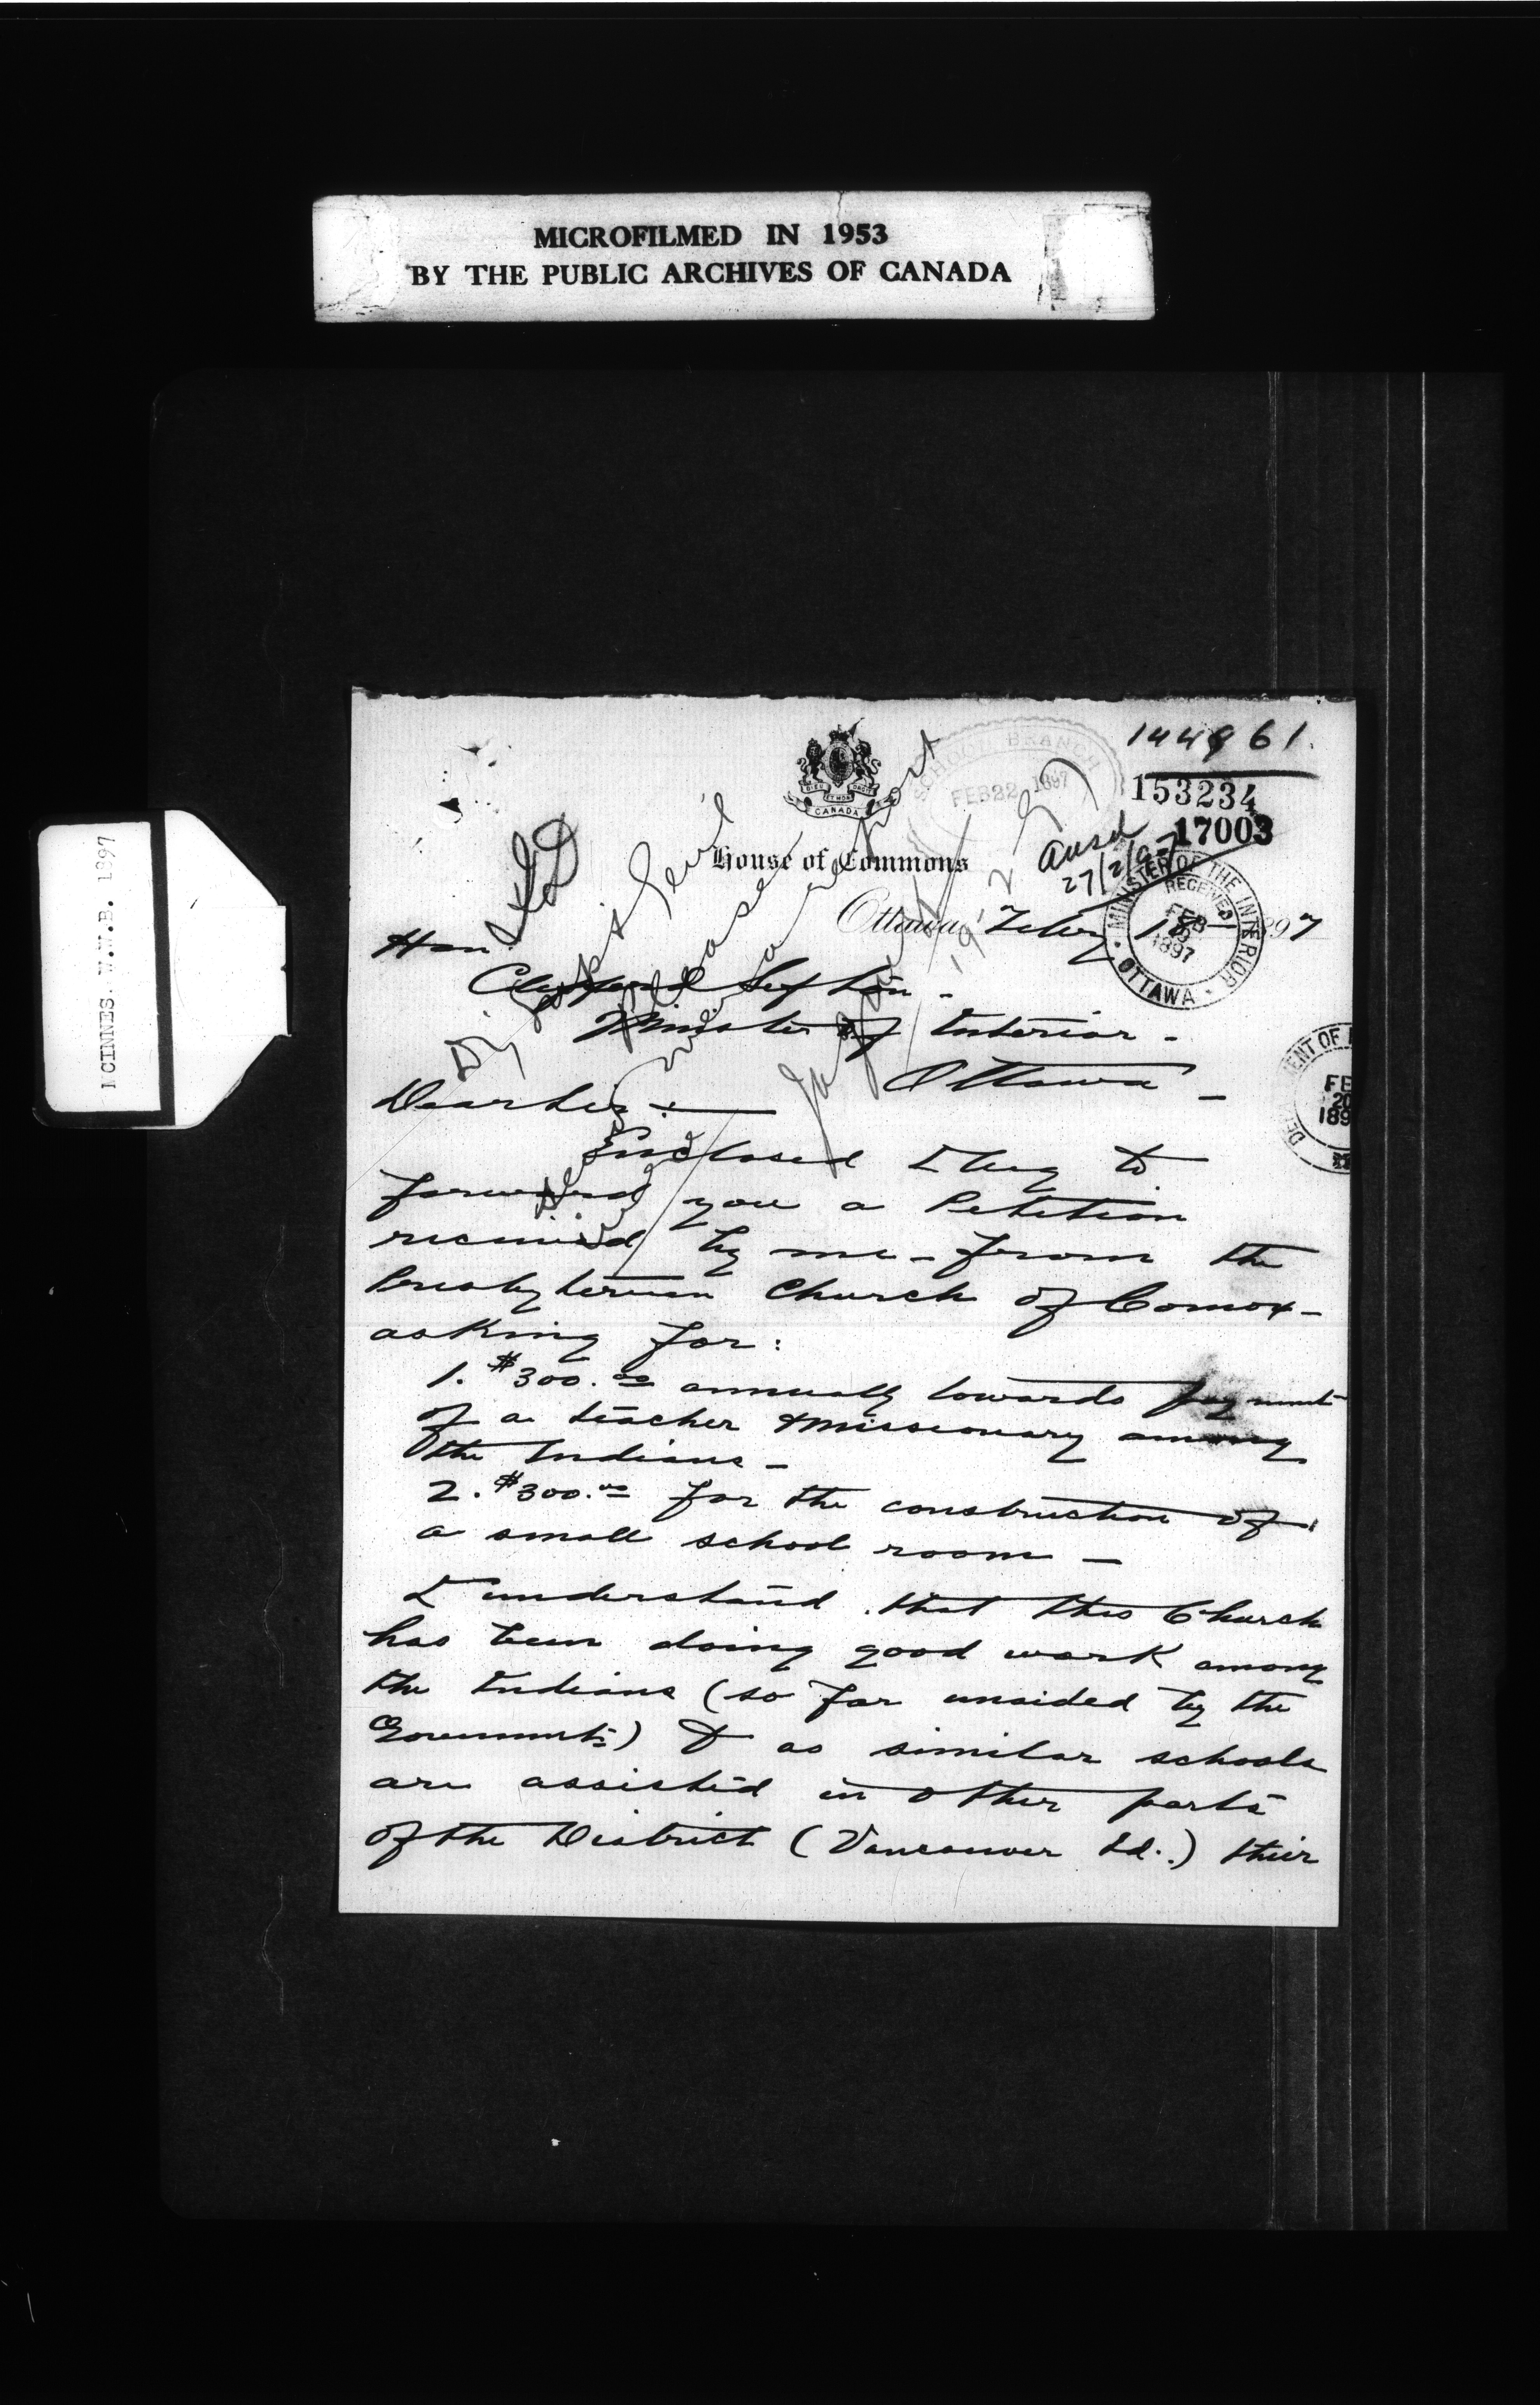 MICROFILMED IN 1953
BY THE PUBLIC ARCHIVES OF CANADA
MCINNES. W.W.B. 1897
144961.
153234
17003
SCHOOL BRANCH
FEB 22 1897
ansd
27/2/97
DIEU ET MON DROIT
CANADA
House of Commons
MINISTER OF THE INTERIOR
RECEIVED
FEB
1897
OTTAWA
Ottawa, Feby 18 1897
Hon.
Clifford Sifton -
Minister of Interior -
Ottawa -
FE
20
189
Dy Supt Genl
Please
report
19/2/97
Dear Sir :—
Enclosed I beg to
forward you a Petition
received by me - from the
Presbyterian Church of Comox -
asking for:
1. $300.00 annually towards payment
of a teacher & missionary among
the Indians -
2. $300.00 for the construction of
a small school room -
I understand that this Church
has been doing good work among
the Indians (so far unaided by the
Government) & as similar schools
are assisted in other parts
of the District (Vancouver Id.) their